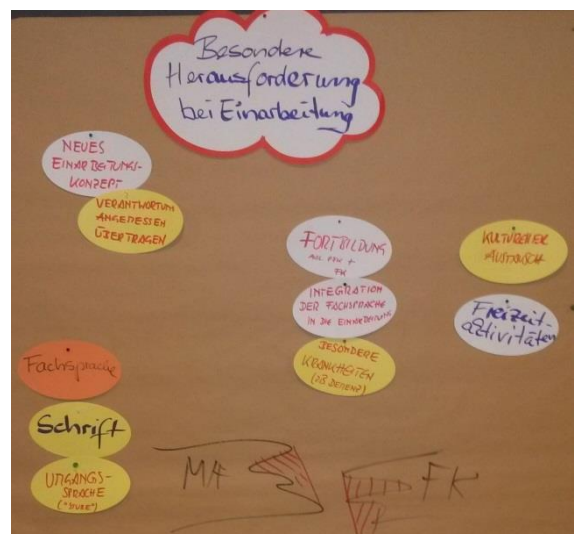 Besondere
Herausforderung
bei Einarbeitung
NEUES
EINARBEITUNGS-
KONZEPT
VERANTWORTUNG
ANGEMESSEN
ÜBERTRAGEN
FORTBILDUNG
FK
INTEGRATION
DER FACHSPRACHE
IN DIE EINARBEITUNG
BESONDERE
KRANKHEITEN
(ZB DEMENZ)
KULTURELLER
AUSTAUSCH
Freizeit-
aktivitäten
Fachsprache
Schrift
UMGANGS-
SPRACHE
MA
FK